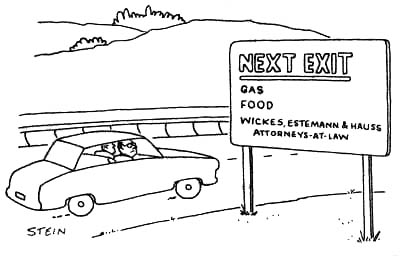 NEXT EXIT
GAS
FOOD
WICKES, ESTEMANN & HAUSS
ATTORNEYS-AT-LAW
STEIN